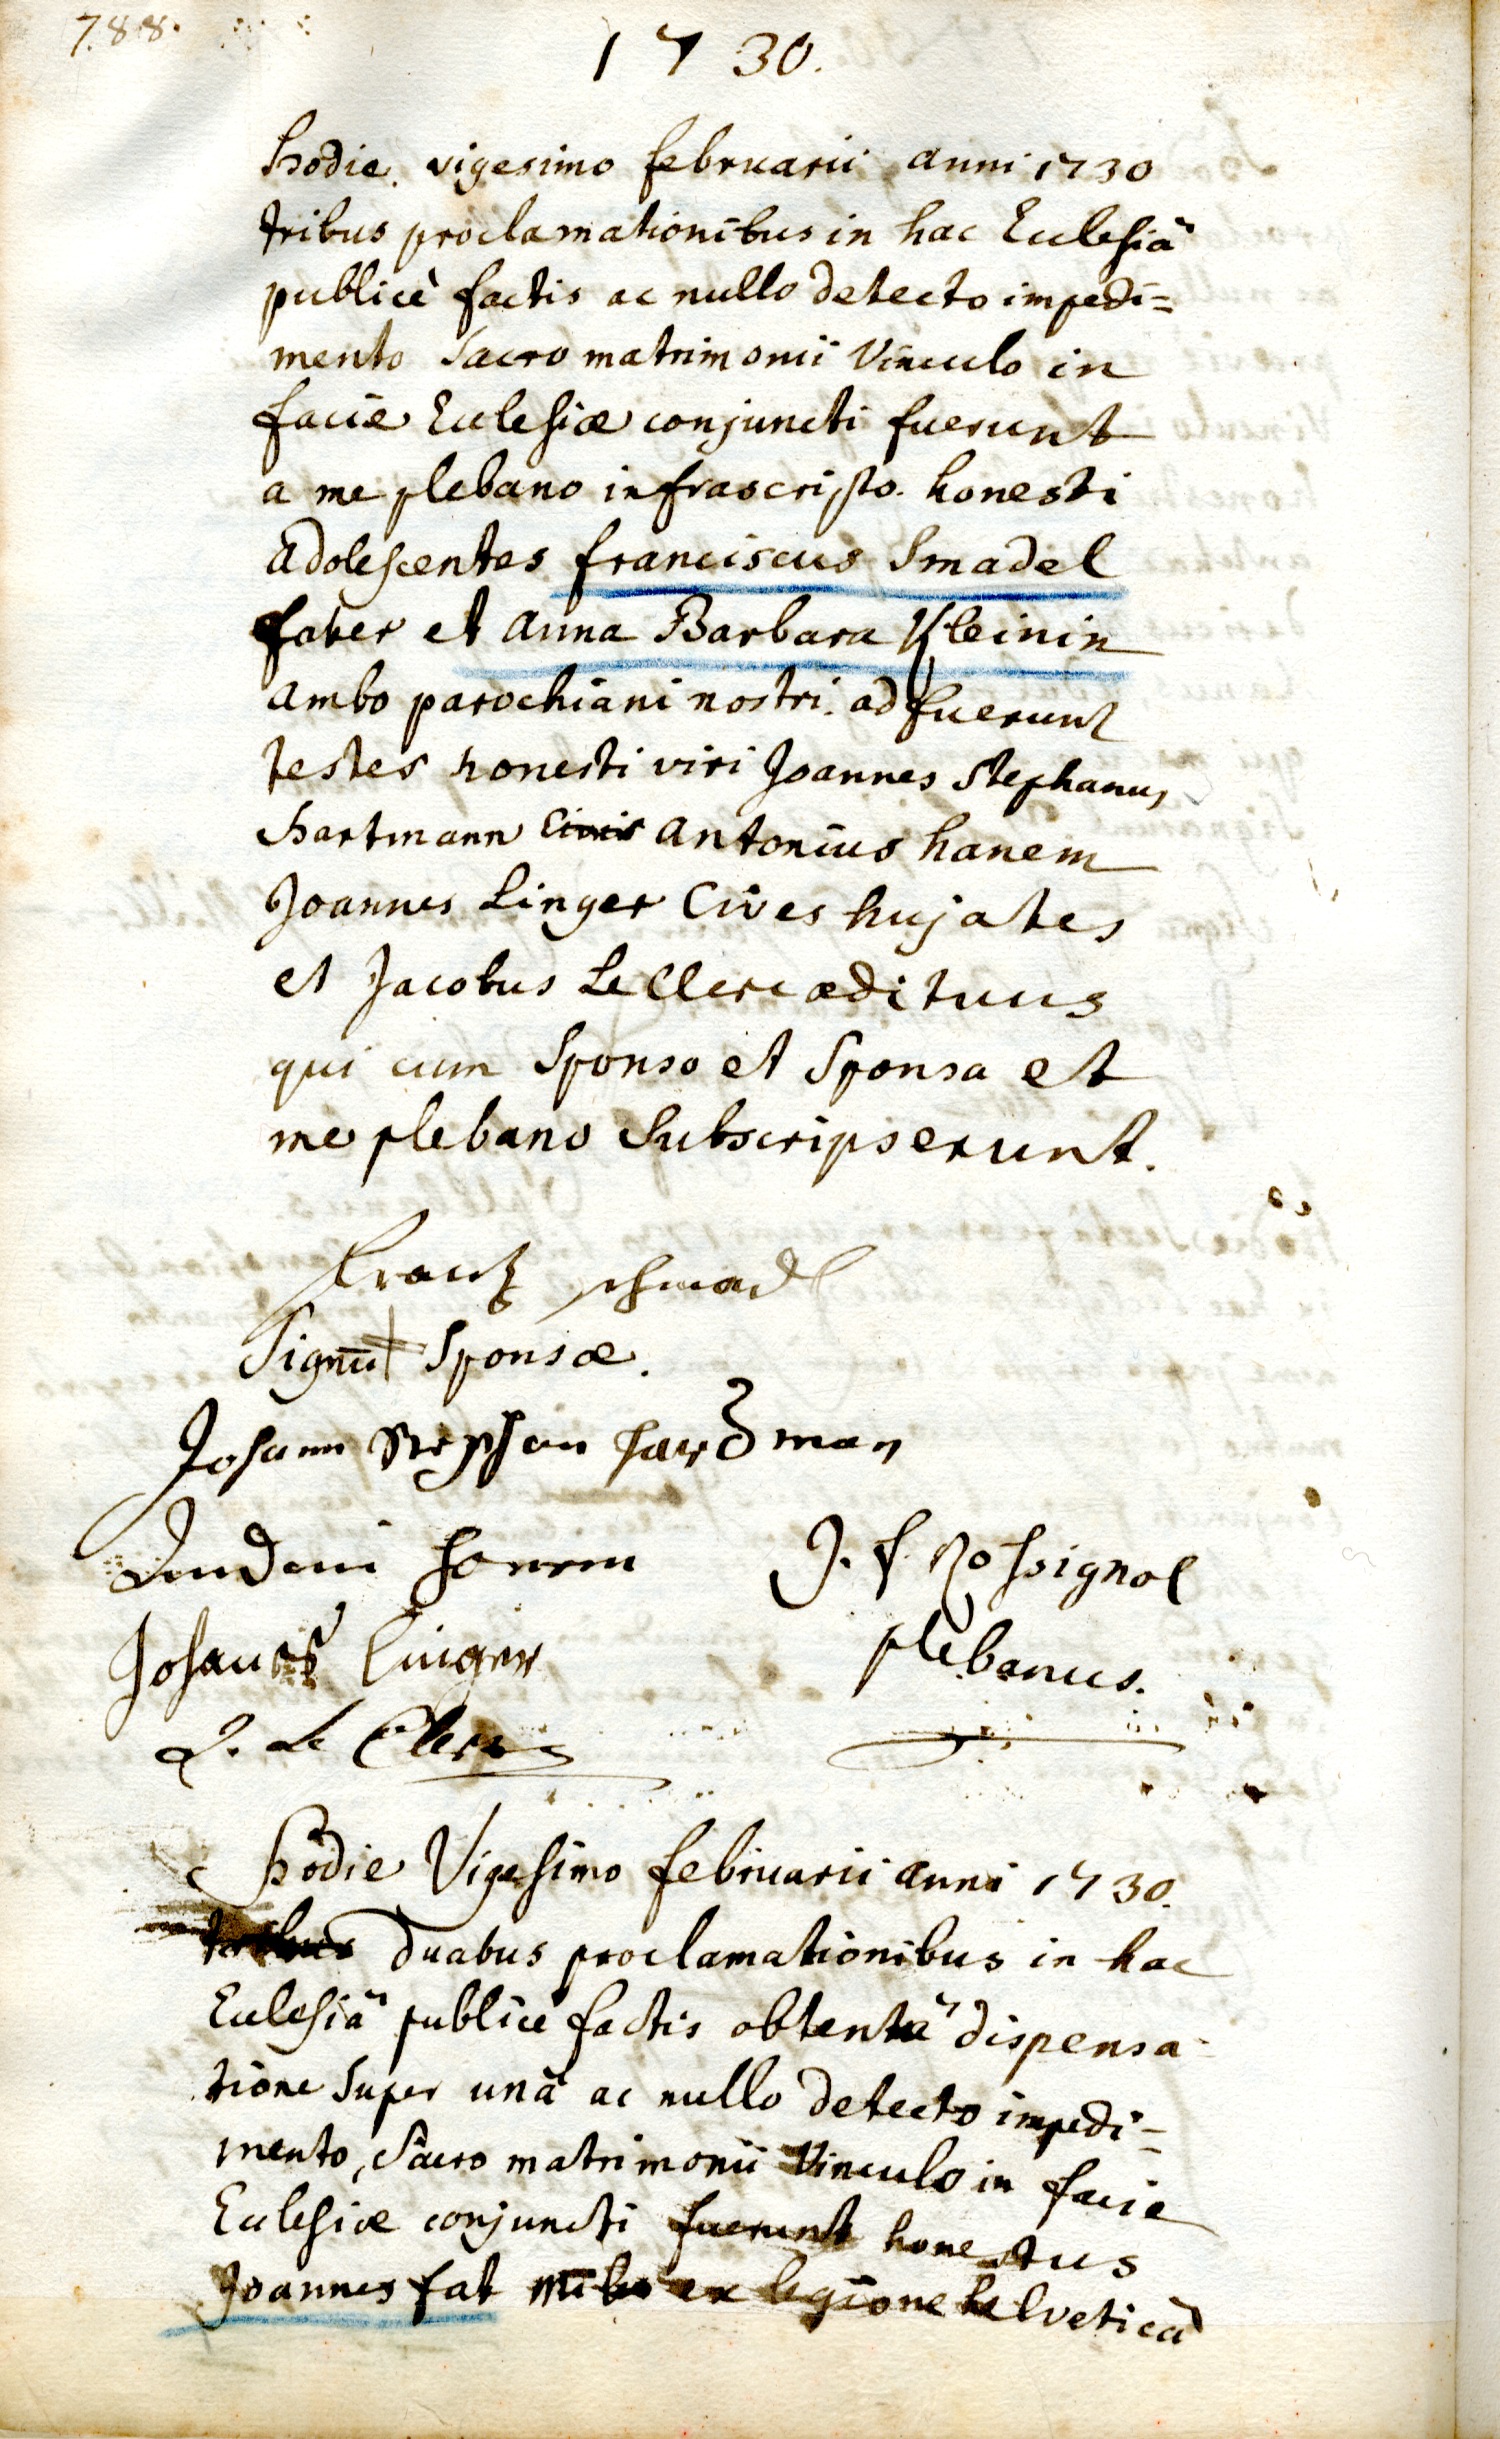 788.
1730.
Hodie vigesimo februarii anni 1730
tribus proclamationibus in hac Ecclesiâ
publicè factis ac nullo detecto impedi=
mento Sacro matrimonii Vinculo in
facie Ecclesiæ conjuncti fuerunt
a me plebano infrascripto. honesti
adolescentes franciscus Smadel
faber et anna Barbara Kleinin
ambo parochiani nostri. adfuerunt
testes honesti viri Joannes Stephanus
Hartmann Civis antonius hanem
Joannes Linger Cives hujates
et Jacobus Le Clerc ædituus
qui cum Sponso et Sponsa et
me plebano Subscripserunt.
Frantz schmadl
Signū + Sponsæ.
Johann Stephan hartman
Andoni hanem
J. f. Rossignol
Johanes Linger
plebanus.
J. Le Clerc
Hodie Vigesimo februarii anni 1730.
duabus proclamationibus in hac
Ecclesiâ publicè factis obtentâ dispensa-
tione Super unâ ac nullo detecto impedi=
mento, Sacro matrimonii Vinculo in facie
Ecclesiæ conjuncti fuerunt honestus
Joannes fat miles ex legione helveticâ